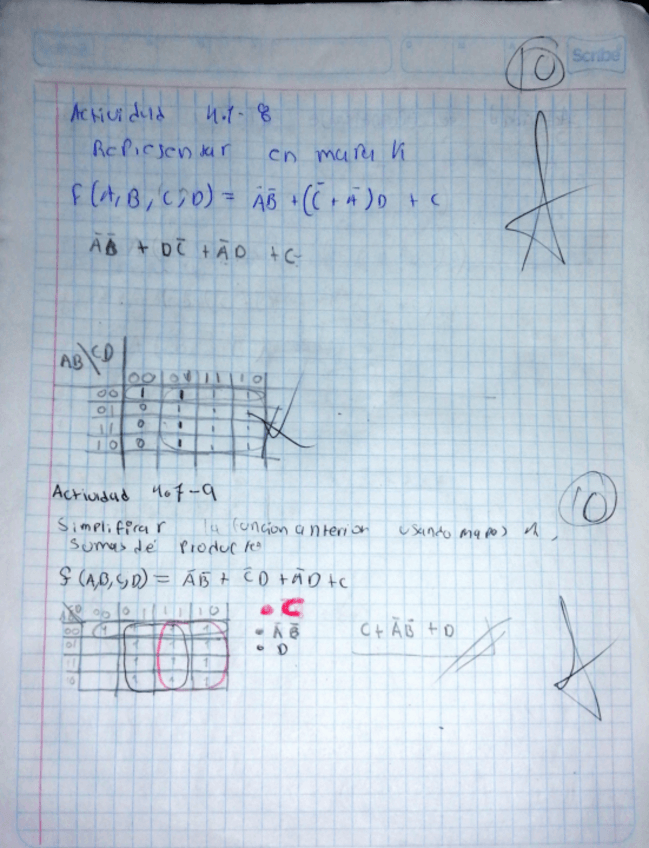 10
Scribe
Actividad 4.7-8
Representar en mapa K
f(A,B,C,D) = ĀB̄ + (C̄ + Ā)D + C
ĀB̄ + DC̄ + ĀD + C
AB\CD
00 01 11 10
00 1 1 1 1
01 0 1 1 1
11 0 1 1 1
10 0 1 1 1
Actividad 4.7-9
10
Simplificar la función anterior usando mapas K,
Sumas de producto
f(A,B,C,D) = ĀB̄ + C̄D + ĀD + C
00 01 11 10
00 1 1 1 1
01 1 1 1
11 1 1 1
10 1 1 1
• C
• ĀB̄
• D
C + ĀB̄ + D